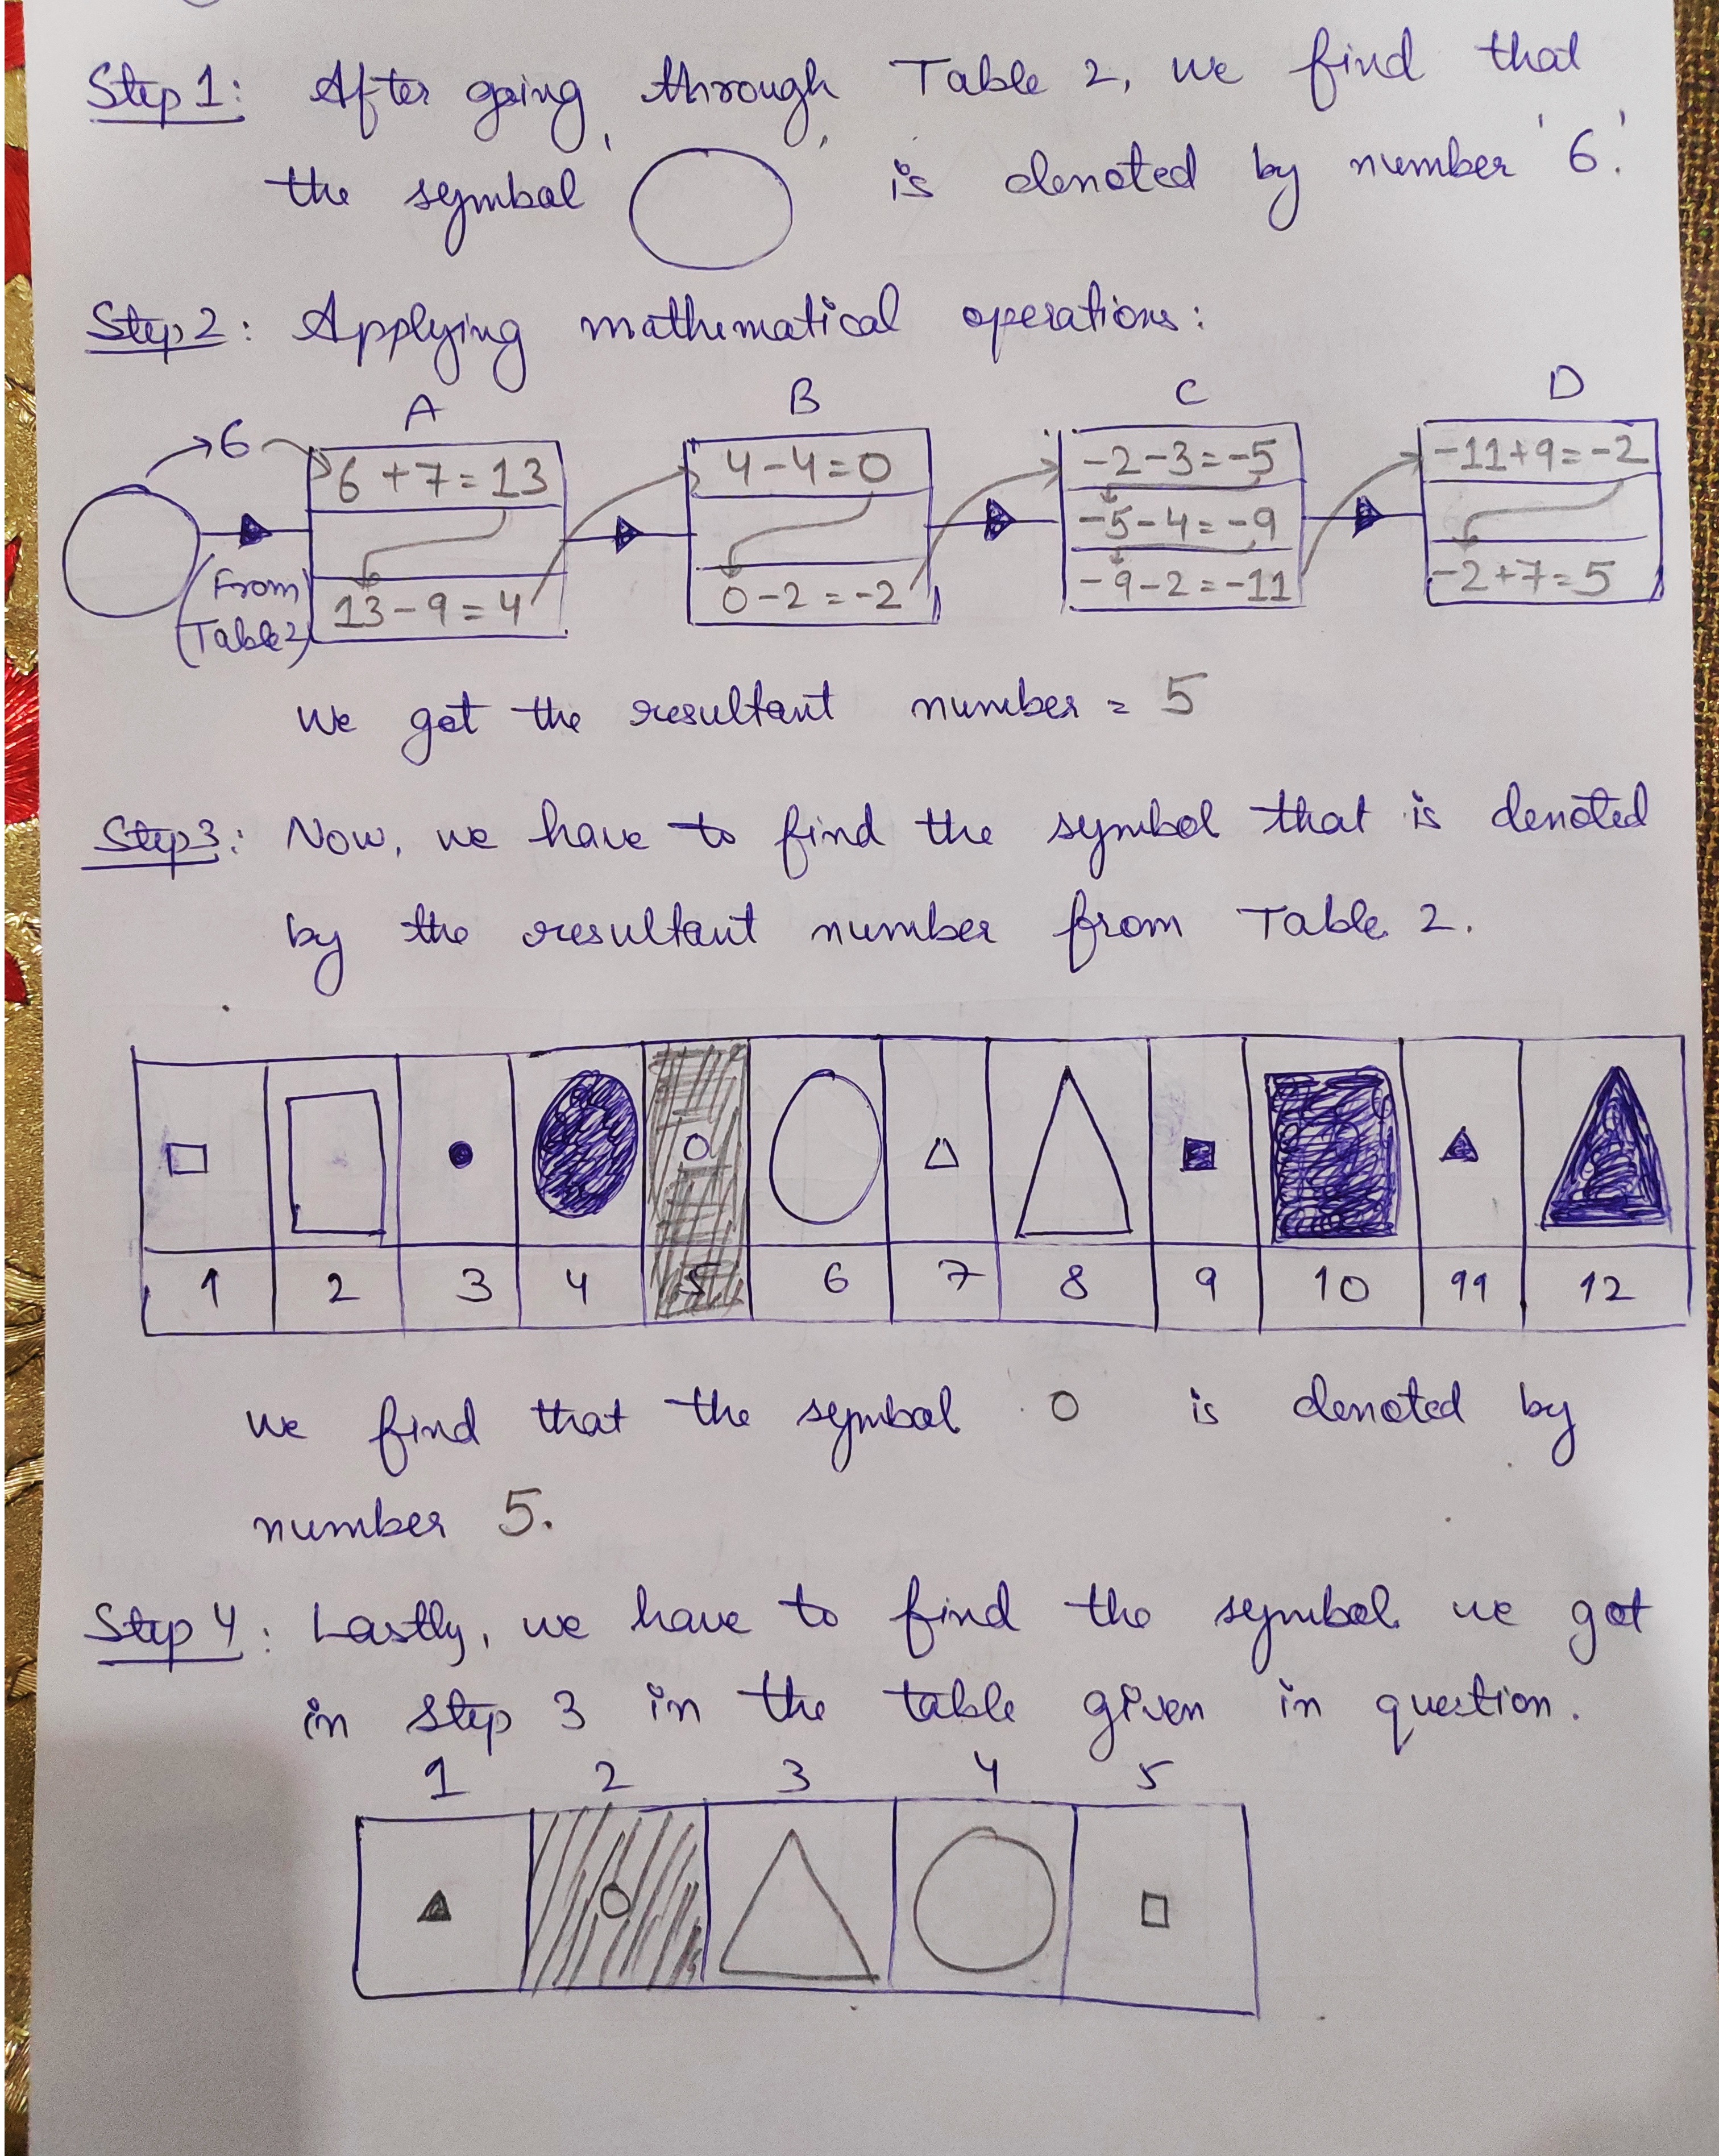 Step 1: After going through Table 2, we find that
the symbol ' ' is denoted by number '6'.
Step 2: Applying mathematical operations:
A B C D
6
6+7=13 4-4=0 -2-3=-5 -11+9=-2
-5-4=-9
13-9=4 0-2=-2 -9-2=-11 -2+7=5
(From
Table 2)
We got the resultant number = 5
Step 3: Now, we have to find the symbol that is denoted
by the resultant number from Table 2.
1 2 3 4 5 6 7 8 9 10 11 12
We find that the symbol is denoted by
number 5.
Step 4: Lastly, we have to find the symbol we got
in step 3 in the table given in question.
1 2 3 4 5